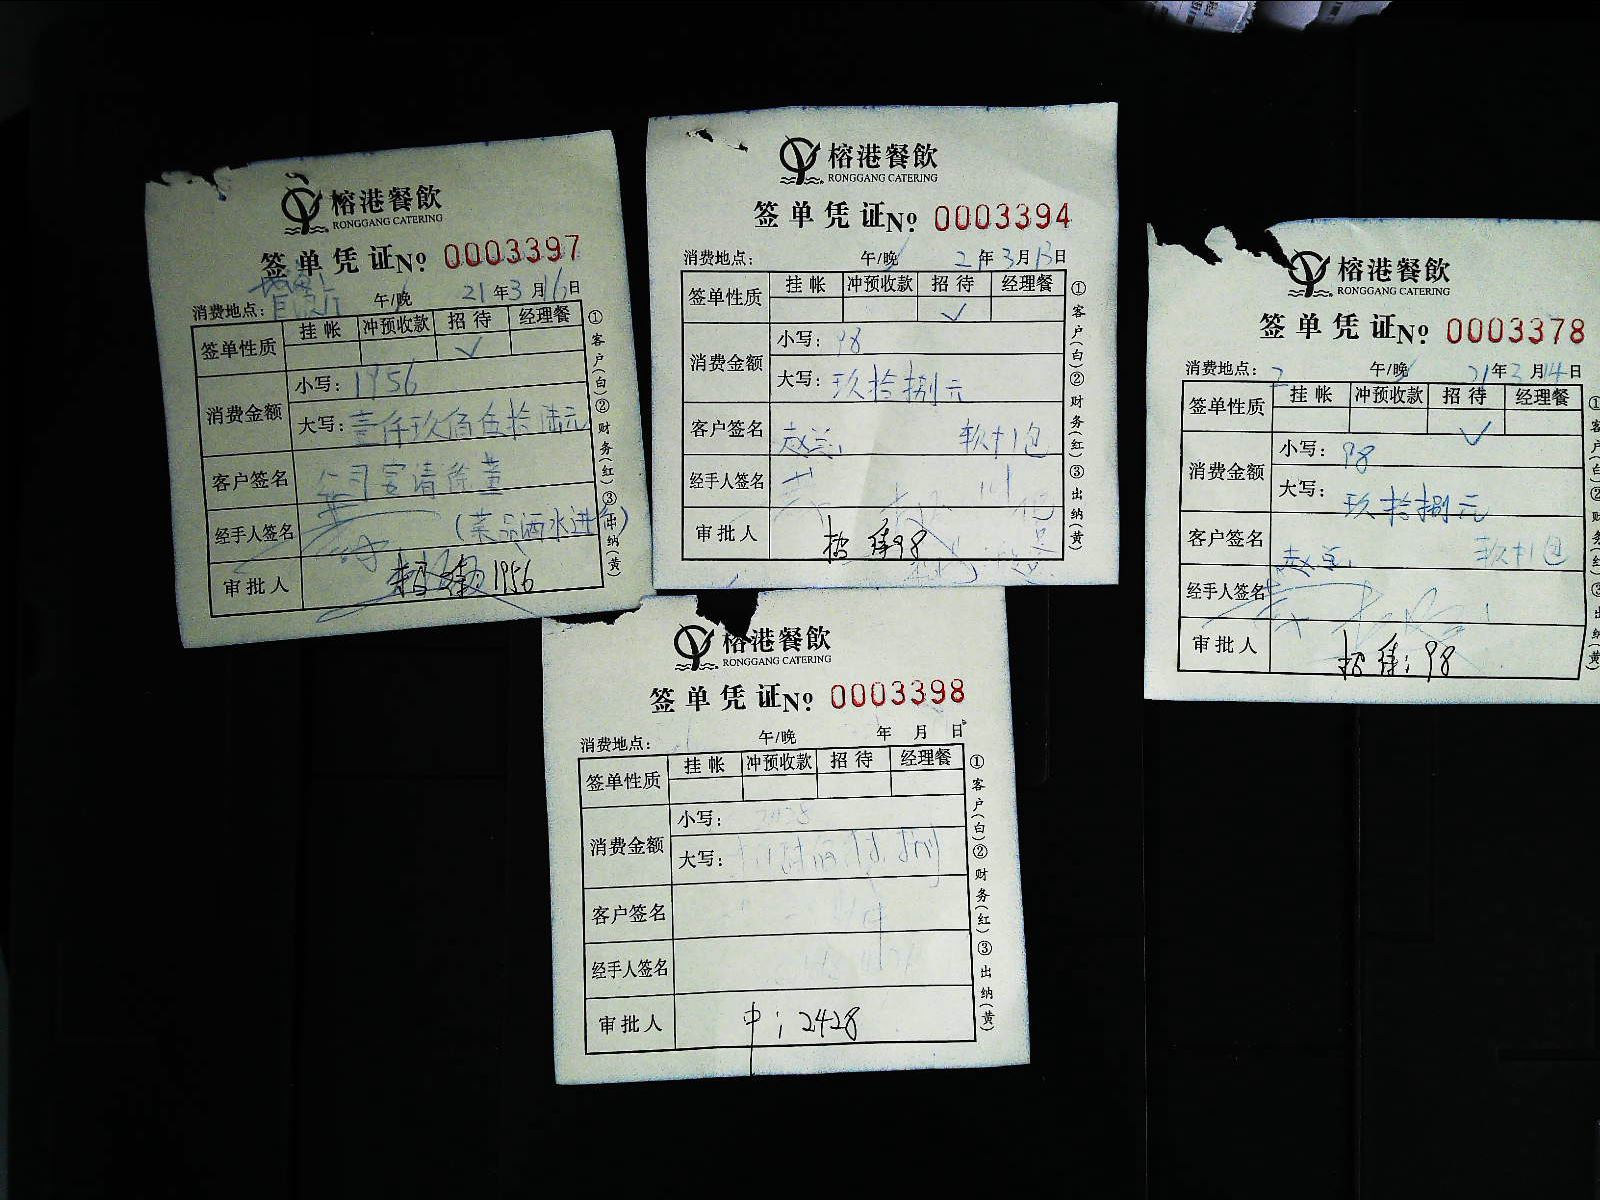 榕港餐飲
RONGGANG CATERING
签单凭证№ 0003397
消费地点： 午/晚 21年3月16日
签单性质 挂帐 冲预收款 招待 经理餐
✓
消费金额 小写：1956
大写：壹仟玖佰伍拾陆元
客户签名 公司宴请
经手人签名 (菜品酒水进
审批人 招待 1956
①客户(白)②财务(红)③出纳(黄)
榕港餐飲
RONGGANG CATERING
签单凭证№ 0003394
消费地点： 午/晚 21年3月13日
签单性质 挂帐 冲预收款 招待 经理餐
✓
消费金额 小写：98
大写：玖拾捌元
客户签名 赵总 软打1包
经手人签名
审批人 招待98
①客户(白)②财务(红)③出纳(黄)
榕港餐飲
RONGGANG CATERING
签单凭证№ 0003378
消费地点： 午/晚 21年3月14日
签单性质 挂帐 冲预收款 招待 经理餐
✓
消费金额 小写：98
大写：玖拾捌元
客户签名 赵总 软打1包
经手人签名
审批人 招待：98
榕港餐飲
RONGGANG CATERING
签单凭证№ 0003398
消费地点： 午/晚 年 月 日
签单性质 挂帐 冲预收款 招待 经理餐
消费金额 小写：2428
大写：
客户签名
经手人签名
审批人 中；2428
①客户(白)②财务(红)③出纳(黄)